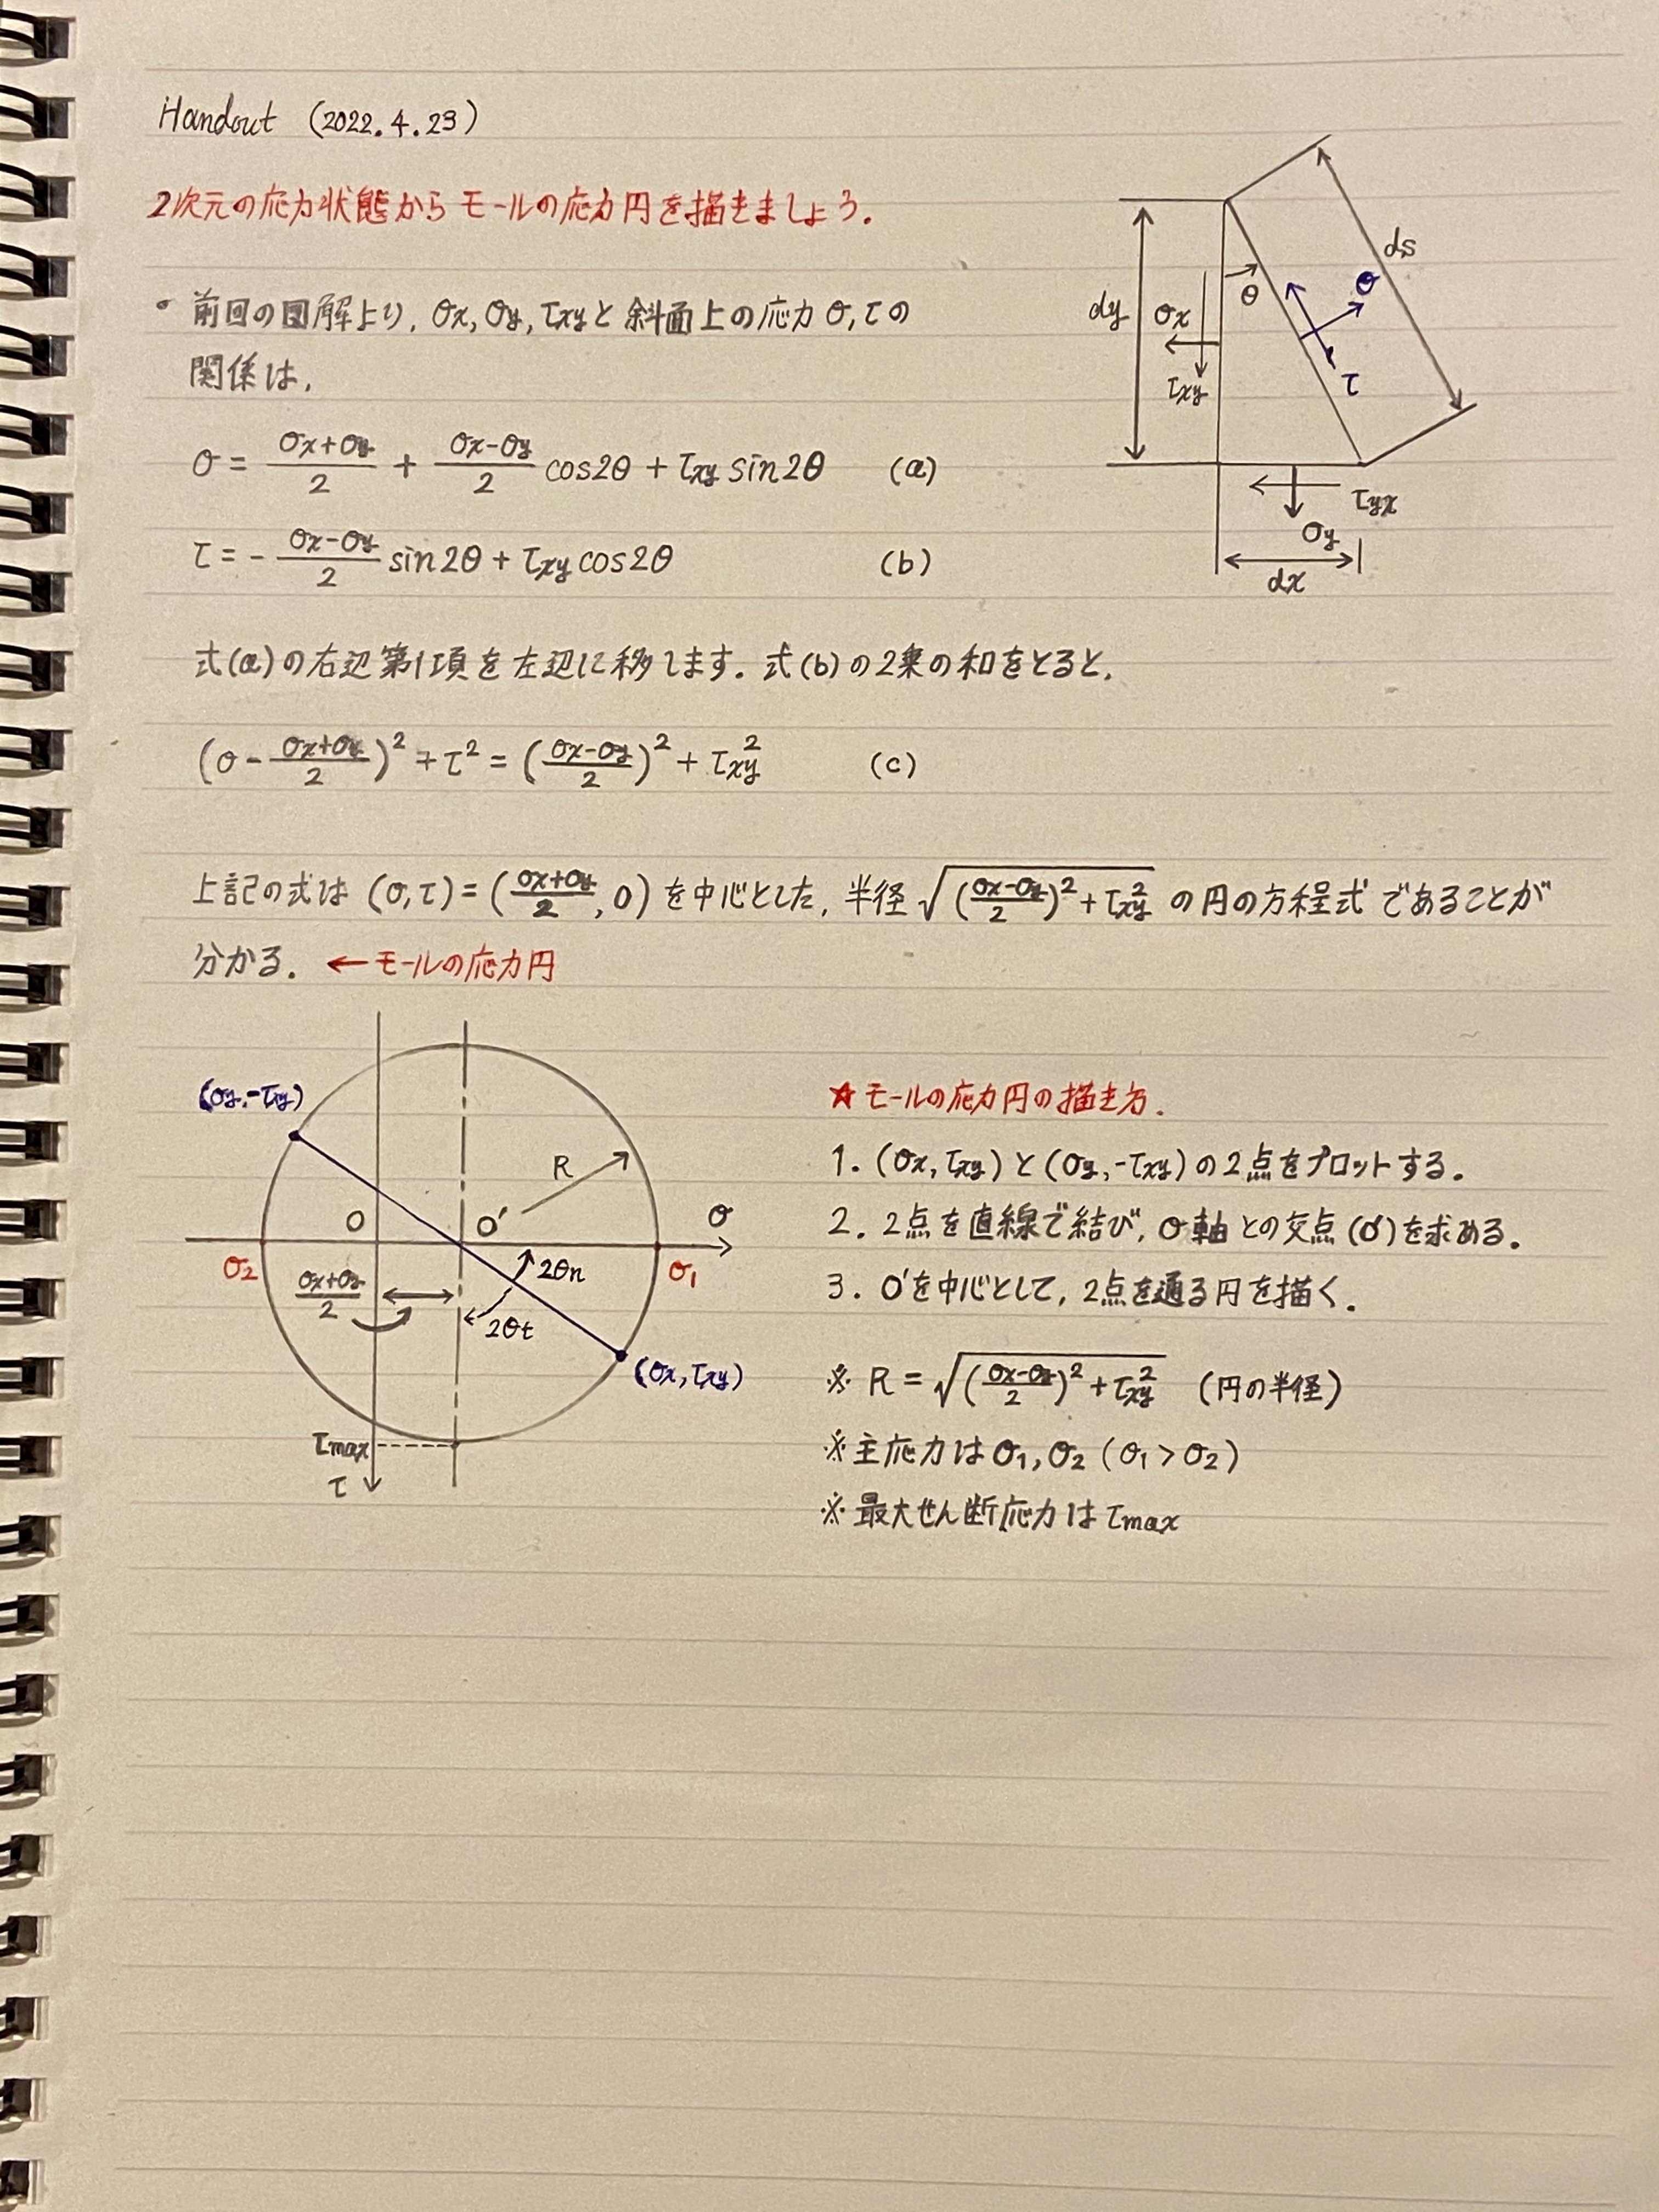 Handout (2022.4.23)
2次元の応力状態からモールの応力円を描きましょう.
• 前回の図解より, σx, σy, τxyと斜面上の応力σ, τの
関係は,
σ = (σx+σy)/2 + (σx-σy)/2 cos2θ + τxy sin2θ (a)
τ = - (σx-σy)/2 sin2θ + τxy cos2θ (b)
dy
σx
τxy
θ
σ
τ
ds
τyx
σy
dx
式(a)の右辺第1項を左辺に移します. 式(b)の2乗の和をとると,
(σ - (σx+σy)/2)² + τ² = ((σx-σy)/2)² + τxy² (c)
上記の式は (σ, τ) = ((σx+σy)/2, 0) を中心とした, 半径 √(((σx-σy)/2)² + τxy²) の円の方程式であることが
分かる. ← モールの応力円
(σy, -τxy)
R
O
O'
σ
σ2
σ1
2θn
(σx+σy)/2
2θt
(σx, τxy)
τmax
τ
☆モールの応力円の描き方.
1. (σx, τxy) と (σy, -τxy) の2点をプロットする.
2. 2点を直線で結び, σ軸との交点 (O') を求める.
3. O'を中心として, 2点を通る円を描く.
※ R = √(((σx-σy)/2)² + τxy²) (円の半径)
※主応力は σ1, σ2 (σ1 > σ2)
※最大せん断応力は τmax